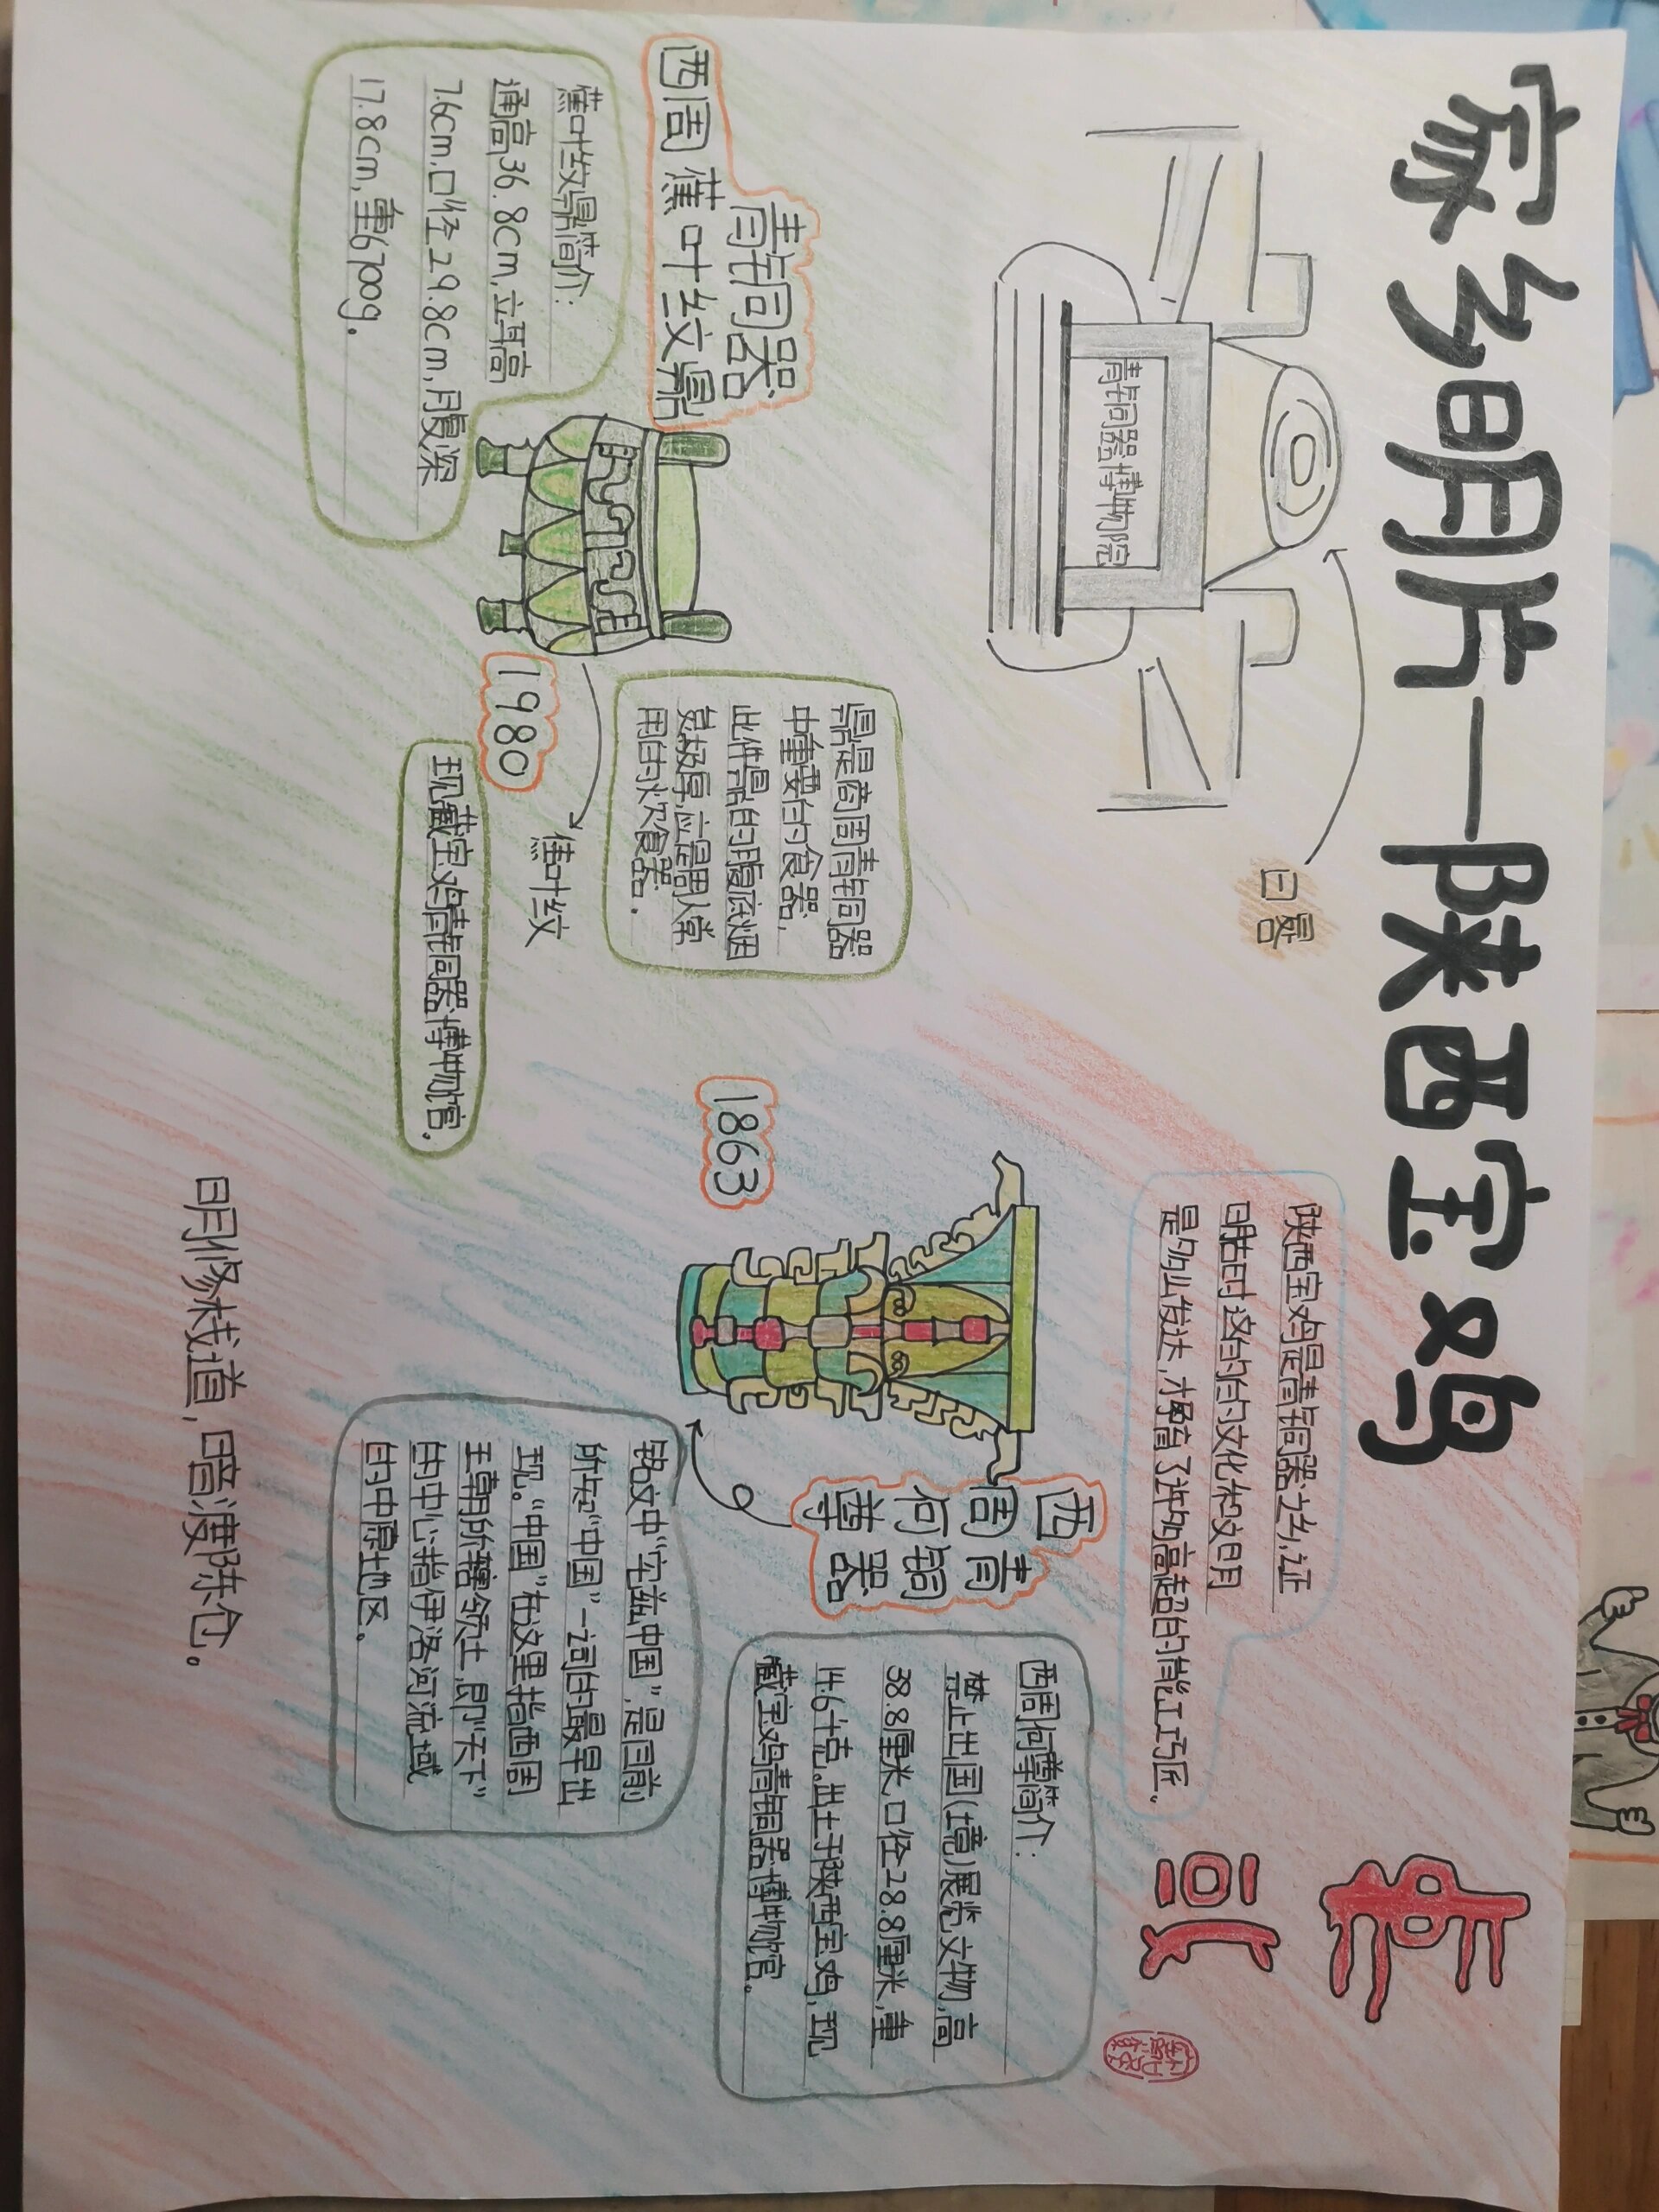 家乡明片—陕西宝鸡
青铜器博物院
日晷
陕西宝鸡是青铜器之乡,证
明古时这的的文化和文明
是多么发达,才孕育了许多高超的能工巧匠。
青铜器
西周蕉叶纹鼎
蕉叶纹鼎简介:
通高36.8cm,立耳高
7.6cm,口径29.8cm,腹深
17.8cm,重6700g。
鼎是商周青铜器
中重要的食器,
此件鼎的腹底烟
炱极厚,应是周人常
用的炊食器.
蕉叶纹
1980
现藏宝鸡青铜器博物官.
1863
西周何尊
青铜器
西周何尊简介:
禁止出国(境)展览文物,高
38.8厘米,口径28.8厘米,重
14.6千克。出土于陕西宝鸡,现
藏宝鸡青铜器博物官.
铭文中"宅兹中国",是目前
所知"中国"一词的最早出
现。"中国"在这里指西周
王朝所辖领土,即"天下"
的中心,指伊洛河流域
的中原地区。
明修栈道,暗渡陈仓。